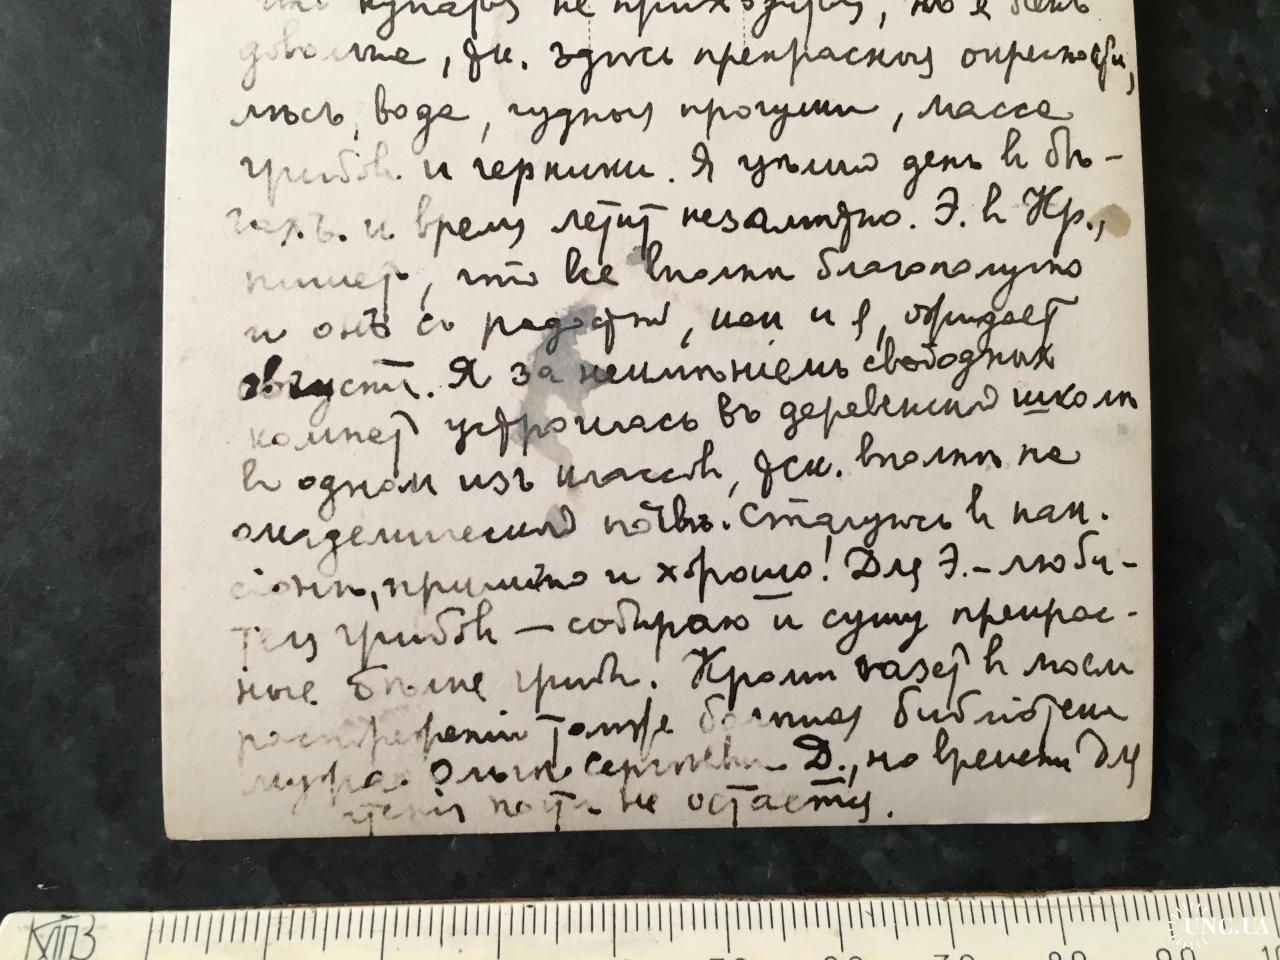 купаться не приходится, но я очень
довольна, т.к. здѣсь прекрасныя окрестности,
лѣсъ, вода, чудныя прогулки, масса
грибов и черники. Я цѣлый день в бѣ-
гахъ и время летит незамѣтно. Э. в Кр.,
пишет, что все вполнѣ благополучно
и онъ съ радостью, как и я, ожидает
августа. Я за неимѣніемъ свободных
комнат устроилась въ деревенской школѣ
в одном изъ классов, т.ск. вполнѣ на
академической почвѣ. Столуюсь в пан-
сіонѣ, приятно и хорошо! Для Э. – люби-
теля грибов – собираю и сушу прекрас-
ные бѣлые грибы. Кромѣ газет в моем
распоряженіи также большая библіотека
мужа Ольги Сергѣевны Д., но времени для
чтенія почти не остается.
XIIПЗ
70 80 90
UNC.UA